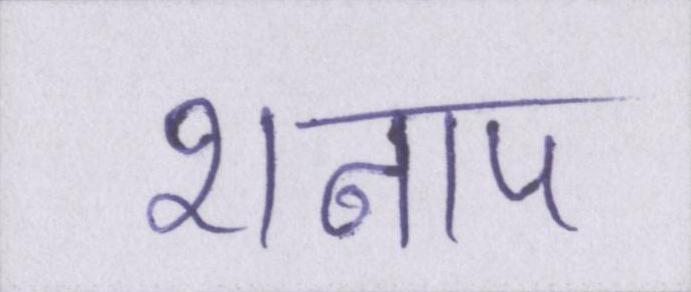 शनाप